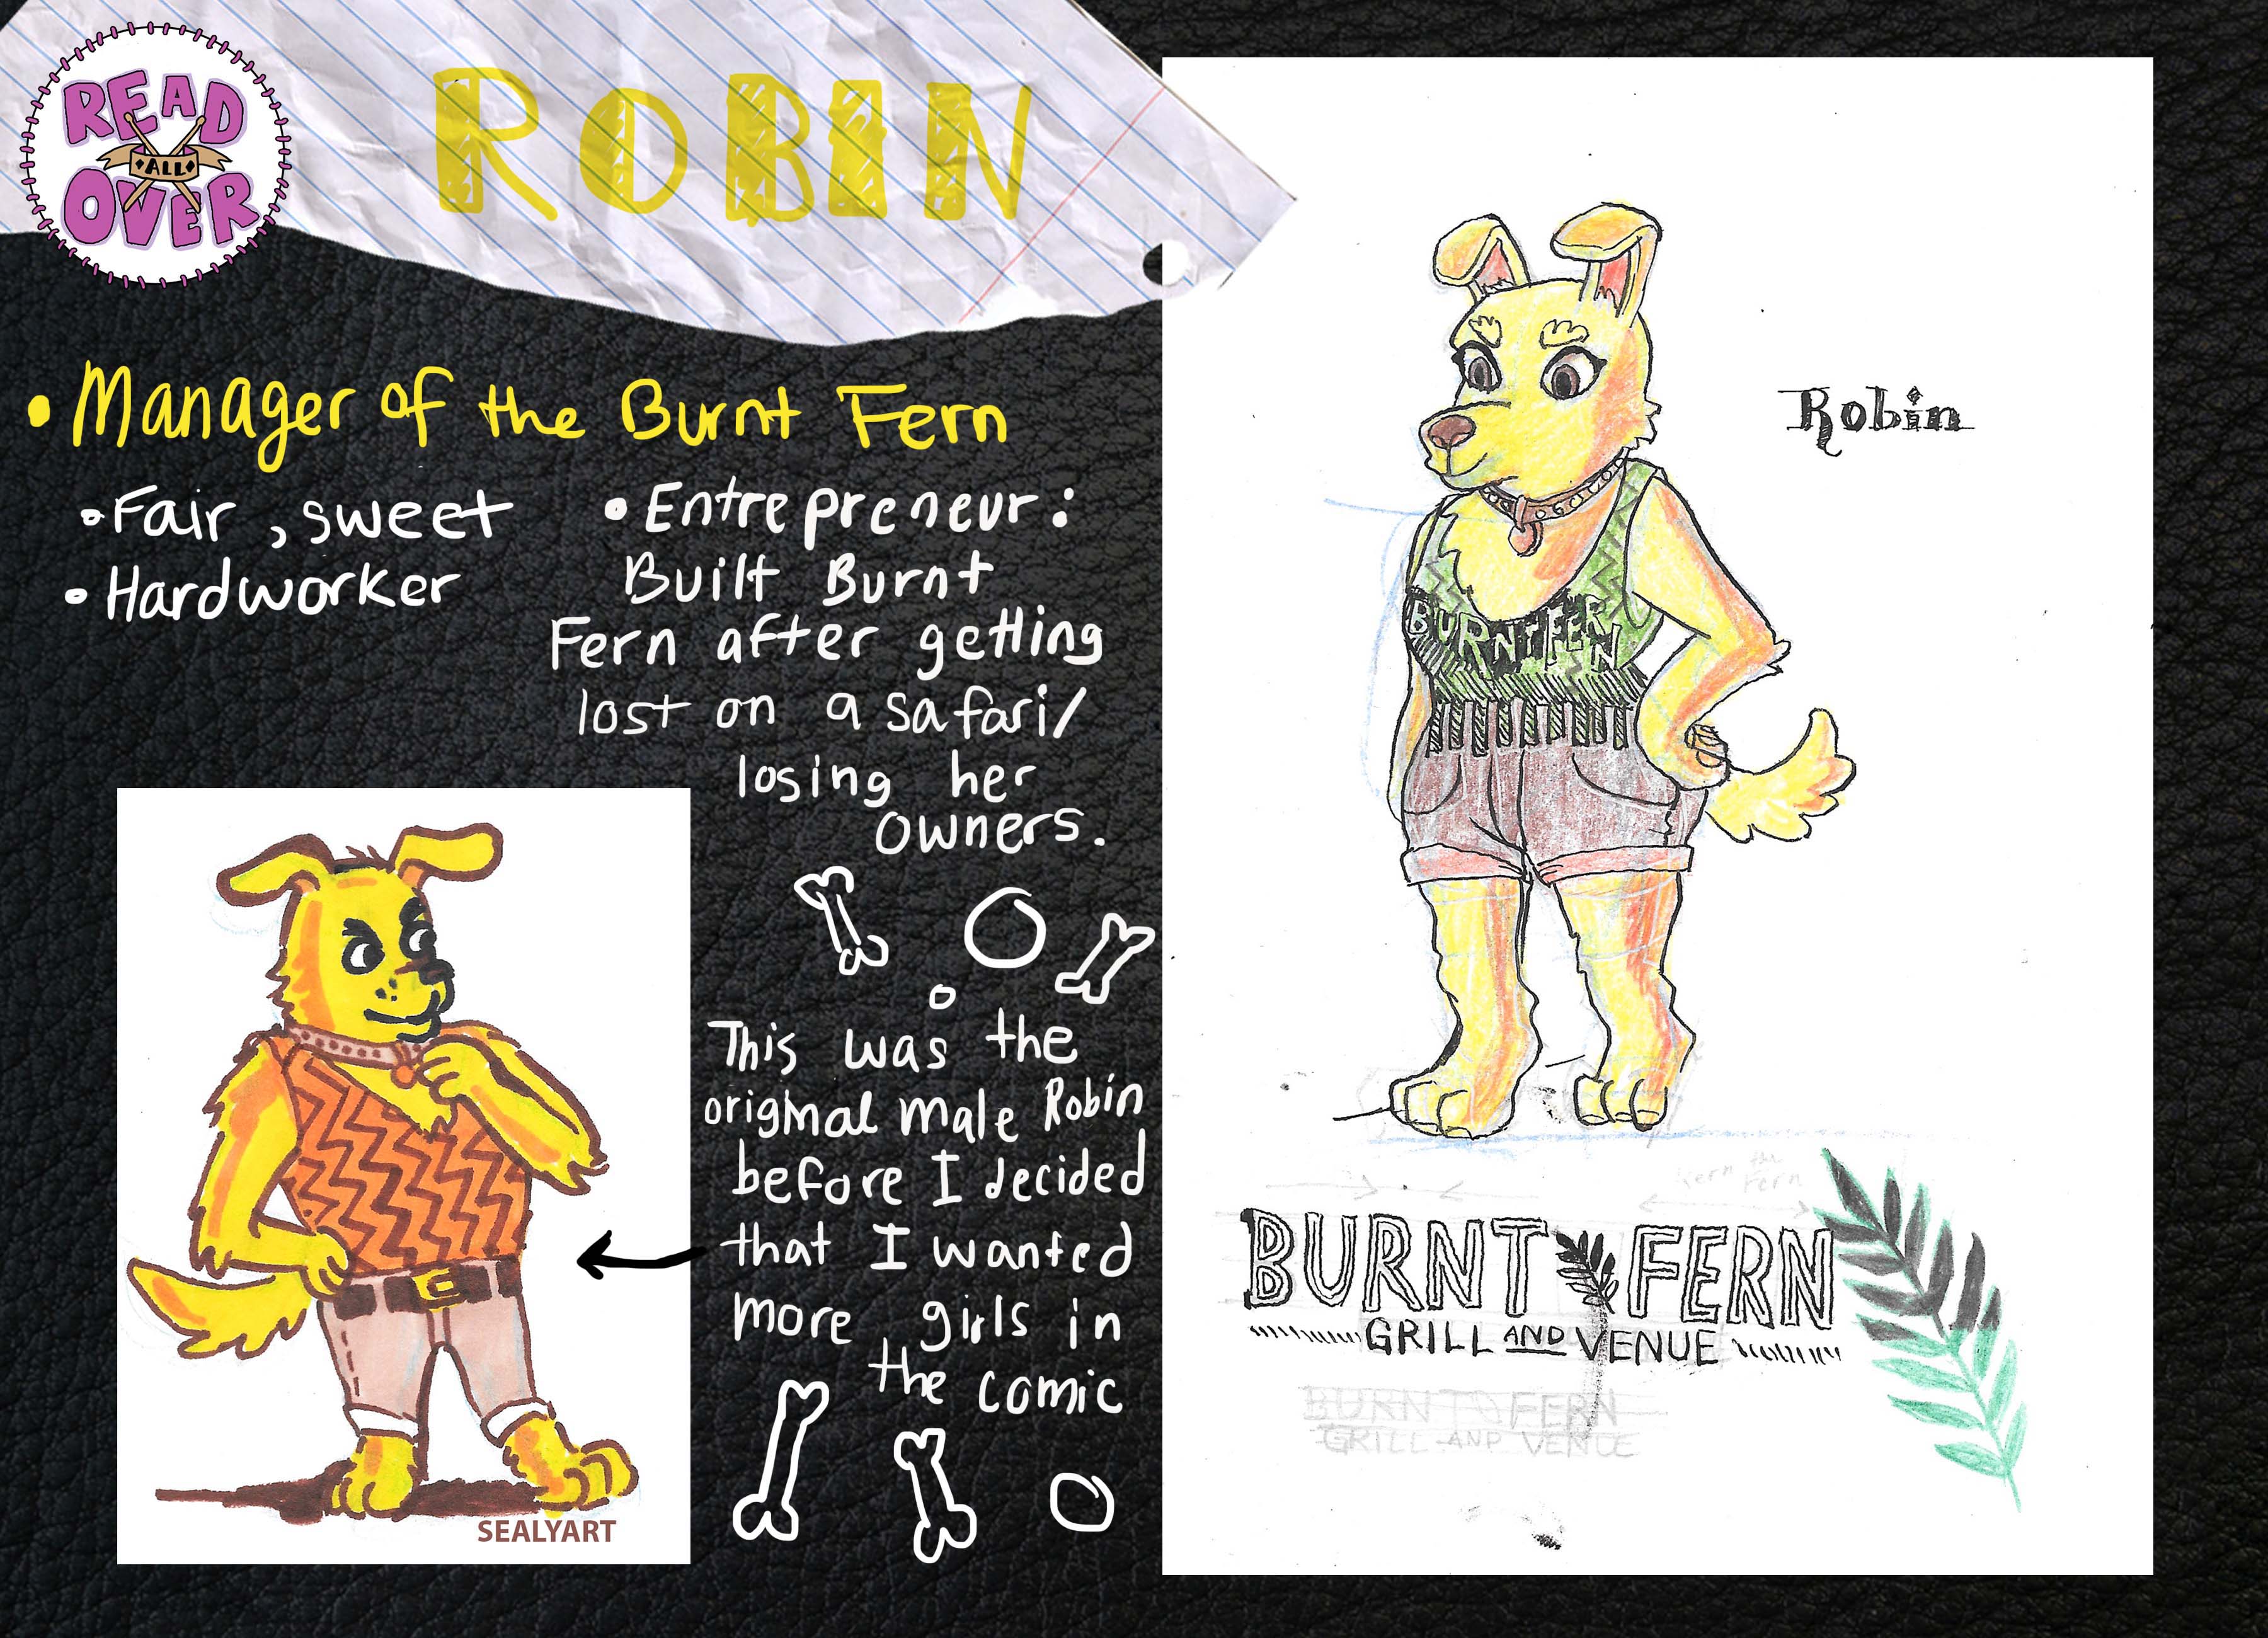 READ
ALL
OVER
ROBIN
• Manager of the Burnt Fern
• Fair, sweet
• Hardworker
• Entrepreneur:
Built Burnt
Fern after getting
lost on a safari/
losing her
owners.
This was the
original male Robin
before I decided
that I wanted
more girls in
the comic
SEALYART
Robin
BURNT FERN
Fern the
Fern
BURNT FERN
GRILL AND VENUE
BURNT FERN
GRILL AND VENUE